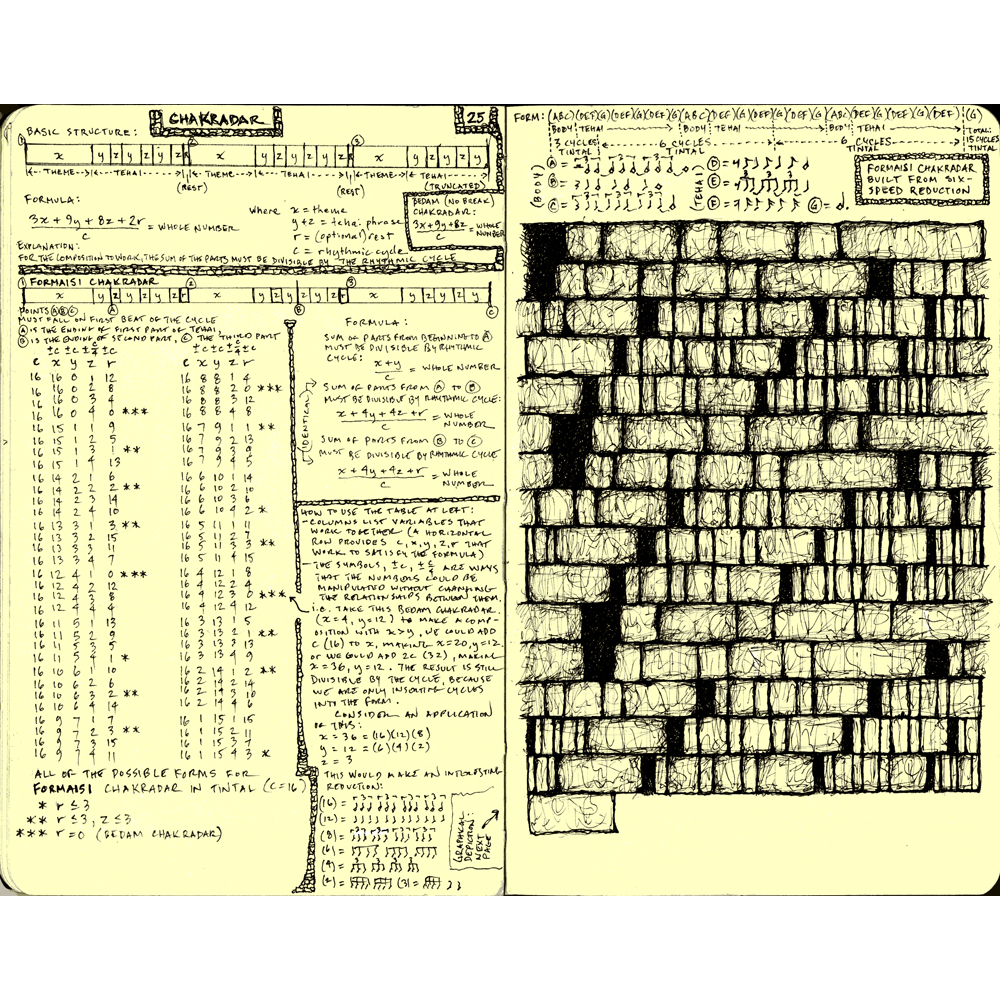 CHAKRADAR
25
BASIC STRUCTURE:
① ② ③
x y z y z y r x y z y z y r x y z y z y
THEME TEHAI (REST) THEME TEHAI (REST) THEME TEHAI (TRUNCATED)
FORMULA:
3x + 9y + 8z + 2r / c = WHOLE NUMBER
where x = theme
y + z = tehai phrase
r = (optional) rest
c = rhythmic cycle
BEDAM (NO BREAK)
CHAKRADAR:
3x + 9y + 8z / c = WHOLE NUMBER
EXPLANATION:
FOR THE COMPOSITION TO WORK, THE SUM OF THE PARTS MUST BE DIVISIBLE BY THE RHYTHMIC CYCLE
① FORMAISI CHAKRADAR ② ③
x y z y z y r x y z y z y r x y z y z y
Ⓐ Ⓑ Ⓒ
POINTS ⒶⒷⒸ
MUST FALL ON FIRST BEAT OF THE CYCLE
Ⓐ IS THE ENDING OF FIRST PART OF TEHAI,
Ⓑ IS THE ENDING OF SECOND PART, Ⓒ THE THIRD PART
±c ±c ±c/4 ±c
c x y z r
16 16 0 1 12
16 16 0 2 8
16 16 0 3 4
16 16 0 4 0 ***
16 15 1 1 9
16 15 1 2 5
16 15 1 3 1 **
16 15 1 4 13
16 14 2 1 6
16 14 2 2 2 **
16 14 2 3 14
16 14 2 4 10
16 13 3 1 3 **
16 13 3 2 15
16 13 3 3 11
16 13 3 4 7
16 12 4 1 0 ***
16 12 4 2 12
16 12 4 3 8
16 12 4 4 4
16 11 5 1 13
16 11 5 2 9
16 11 5 3 5
16 11 5 4 1 *
16 10 6 1 10
16 10 6 2 6
16 10 6 3 2 **
16 10 6 4 14
16 9 7 1 7
16 9 7 2 3 **
16 9 7 3 15
16 9 7 4 11
±c ±c ±c/4 ±c
c x y z r
16 8 8 1 4
16 8 8 2 0 ***
16 8 8 3 12
16 8 8 4 8
16 7 9 1 1 **
16 7 9 2 13
16 7 9 3 9
16 7 9 4 5
16 6 10 1 14
16 6 10 2 10
16 6 10 3 6
16 6 10 4 2 *
16 5 11 1 11
16 5 11 2 7
16 5 11 3 3 **
16 5 11 4 15
16 4 12 1 8
16 4 12 2 4
16 4 12 3 0 ***
16 4 12 4 12
16 3 13 1 5
16 3 13 2 1 **
16 3 13 3 13
16 3 13 4 9
16 2 14 1 2 **
16 2 14 2 14
16 2 14 3 10
16 2 14 4 6
16 1 15 1 15
16 1 15 2 11
16 1 15 3 7
16 1 15 4 3 *
ALL OF THE POSSIBLE FORMS FOR
FORMAISI CHAKRADAR IN TINTAL (C=16)
* r ≤ 3
** r ≤ 3, z ≤ 3
*** r = 0 (BEDAM CHAKRADAR)
FORMULA:
SUM OF PARTS FROM BEGINNING TO Ⓐ
MUST BE DIVISIBLE BY RHYTHMIC
CYCLE:
x + y / c = WHOLE NUMBER
(IDENTICAL)
SUM OF PARTS FROM Ⓐ TO Ⓑ
MUST BE DIVISIBLE BY RHYTHMIC CYCLE:
x + 4y + 4z + r / c = WHOLE NUMBER
SUM OF PARTS FROM Ⓑ TO Ⓒ
MUST BE DIVISIBLE BY RHYTHMIC CYCLE
x + 4y + 4z + r / c = WHOLE NUMBER
HOW TO USE THE TABLE AT LEFT:
- COLUMNS LIST VARIABLES THAT
WORK TOGETHER (A HORIZONTAL
ROW PROVIDES C, x, y, z, r THAT
WORK TO SATISFY THE FORMULA)
- THE SYMBOLS, ±c, ±c/4 ARE WAYS
THAT THE NUMBERS COULD BE
MANIPULATED WITHOUT CHANGING
THE RELATIONSHIPS BETWEEN THEM.
i.e. TAKE THIS BEDAM CHAKRADAR.
(x=4, y=12) TO MAKE A COMP-
OSITION WITH x>y, WE COULD ADD
C (16) TO x, MAKING x=20, y=12
OR WE COULD ADD 2C (32), MAKING
x=36, y=12. THE RESULT IS STILL
DIVISIBLE BY THE CYCLE, BECAUSE
WE ARE ONLY INSERTING CYCLES
INTO THE FORM.
CONSIDER AN APPLICATION
OF THIS:
x = 36 = (16)(12)(8)
y = 12 = (6)(4)(2)
z = 3
THIS WOULD MAKE AN INTERESTING
REDUCTION:
(16) =
(12) =
(8) =
(6) =
(4) =
(2) = (3) =
GRAPHICAL
DEPICTION:
NEXT
PAGE
FORM: (ABC)(DEF)(G)(DEF)(G)(DEF)(G)(ABC)(DEF)(G)(DEF)(G)(DEF)(G)(ABC)(DEF)(G)(DEF)(G)(DEF) (G)
BODY TEHAI BODY TEHAI BODY TEHAI
3 CYCLES TINTAL 6 CYCLES TINTAL 6 CYCLES TINTAL
TOTAL:
15 CYCLES
TINTAL
(BODY)
Ⓐ =
Ⓑ =
Ⓒ =
(TEHAI)
Ⓓ =
Ⓔ =
Ⓕ = Ⓖ =
FORMAISI CHAKRADAR
BUILT FROM SIX-
SPEED REDUCTION